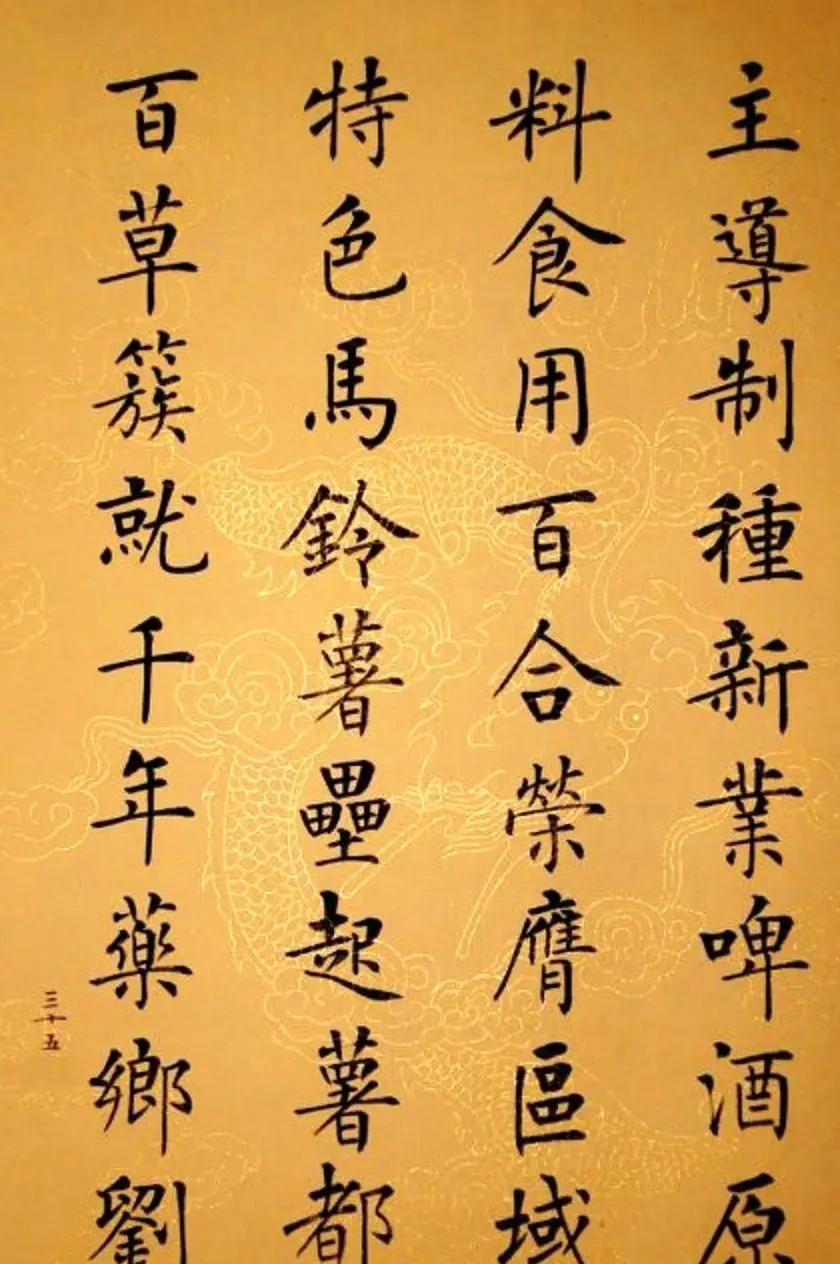 主導制種新業啤酒原
料食用百合榮膺區域
特色馬鈴薯壘起薯都
百草簇就千年藥鄉劉
三十五